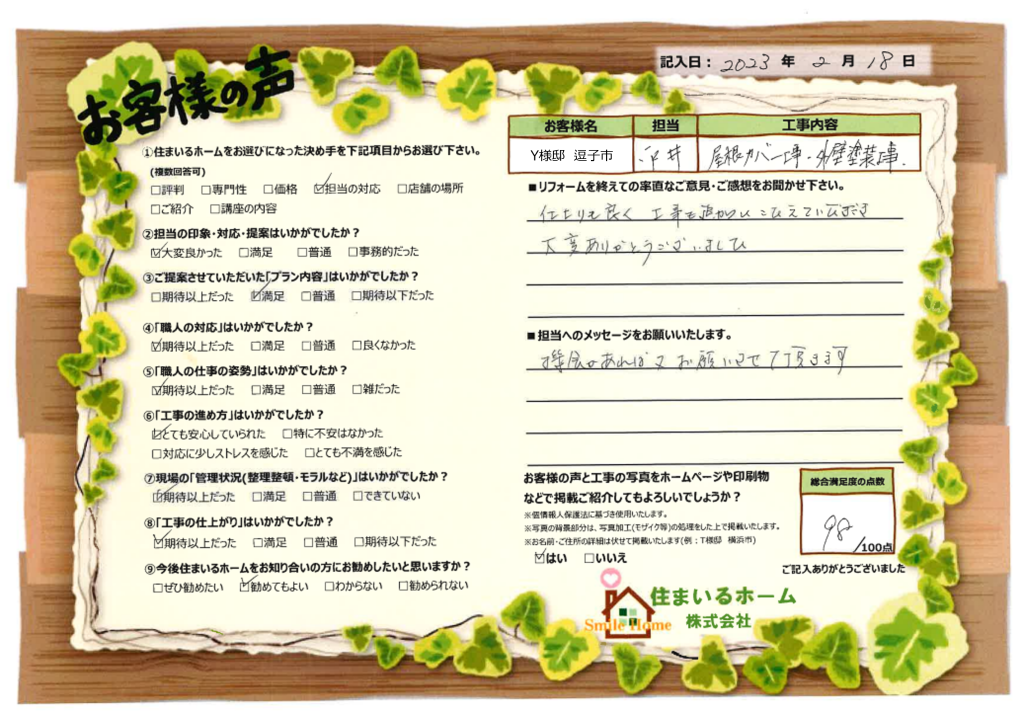 お客様の声
記入日： 2023 年 2 月 18 日
お客様名 担当 工事内容
Y様邸 逗子市 平井 屋根カバー工事・外壁塗装工事.
①住まいるホームをお選びになった決め手を下記項目からお選び下さい。
(複数回答可)
□評判 □専門性 □価格 ☑担当の対応 □店舗の場所
□ご紹介 □講座の内容
②担当の印象・対応・提案はいかがでしたか？
☑大変良かった □満足 □普通 □事務的だった
③ご提案させていただいた「プラン内容」はいかがでしたか？
□期待以上だった ☑満足 □普通 □期待以下だった
④「職人の対応」はいかがでしたか？
☑期待以上だった □満足 □普通 □良くなかった
⑤「職人の仕事の姿勢」はいかがでしたか？
☑期待以上だった □満足 □普通 □雑だった
⑥「工事の進め方」はいかがでしたか？
☑とても安心していられた □特に不安はなかった
□対応に少しストレスを感じた □とても不満を感じた
⑦現場の「管理状況(整理整頓・モラルなど)」はいかがでしたか？
☑期待以上だった □満足 □普通 □できていない
⑧「工事の仕上がり」はいかがでしたか？
☑期待以上だった □満足 □普通 □期待以下だった
⑨今後住まいるホームをお知り合いの方にお勧めしたいと思いますか？
□ぜひ勧めたい ☑勧めてもよい □わからない □勧められない
■リフォームを終えての率直なご意見・ご感想をお聞かせ下さい。
仕上りも良く 工事も
大変ありがとうございました
■担当へのメッセージをお願いいたします。
機会があれば又お願いさせて頂きます
お客様の声と工事の写真をホームページや印刷物
などで掲載ご紹介してもよろしいでしょうか？
※個情報人保護法に基づき使用いたします。
※写真の背景部分は、写真加工(モザイク等)の処理をした上で掲載いたします。
※お名前・ご住所の詳細は伏せて掲載いたします(例：T様邸 横浜市)
☑はい □いいえ
総合満足度の点数
98
/100点
ご記入ありがとうございました
住まいるホーム
株式会社
Smile Home